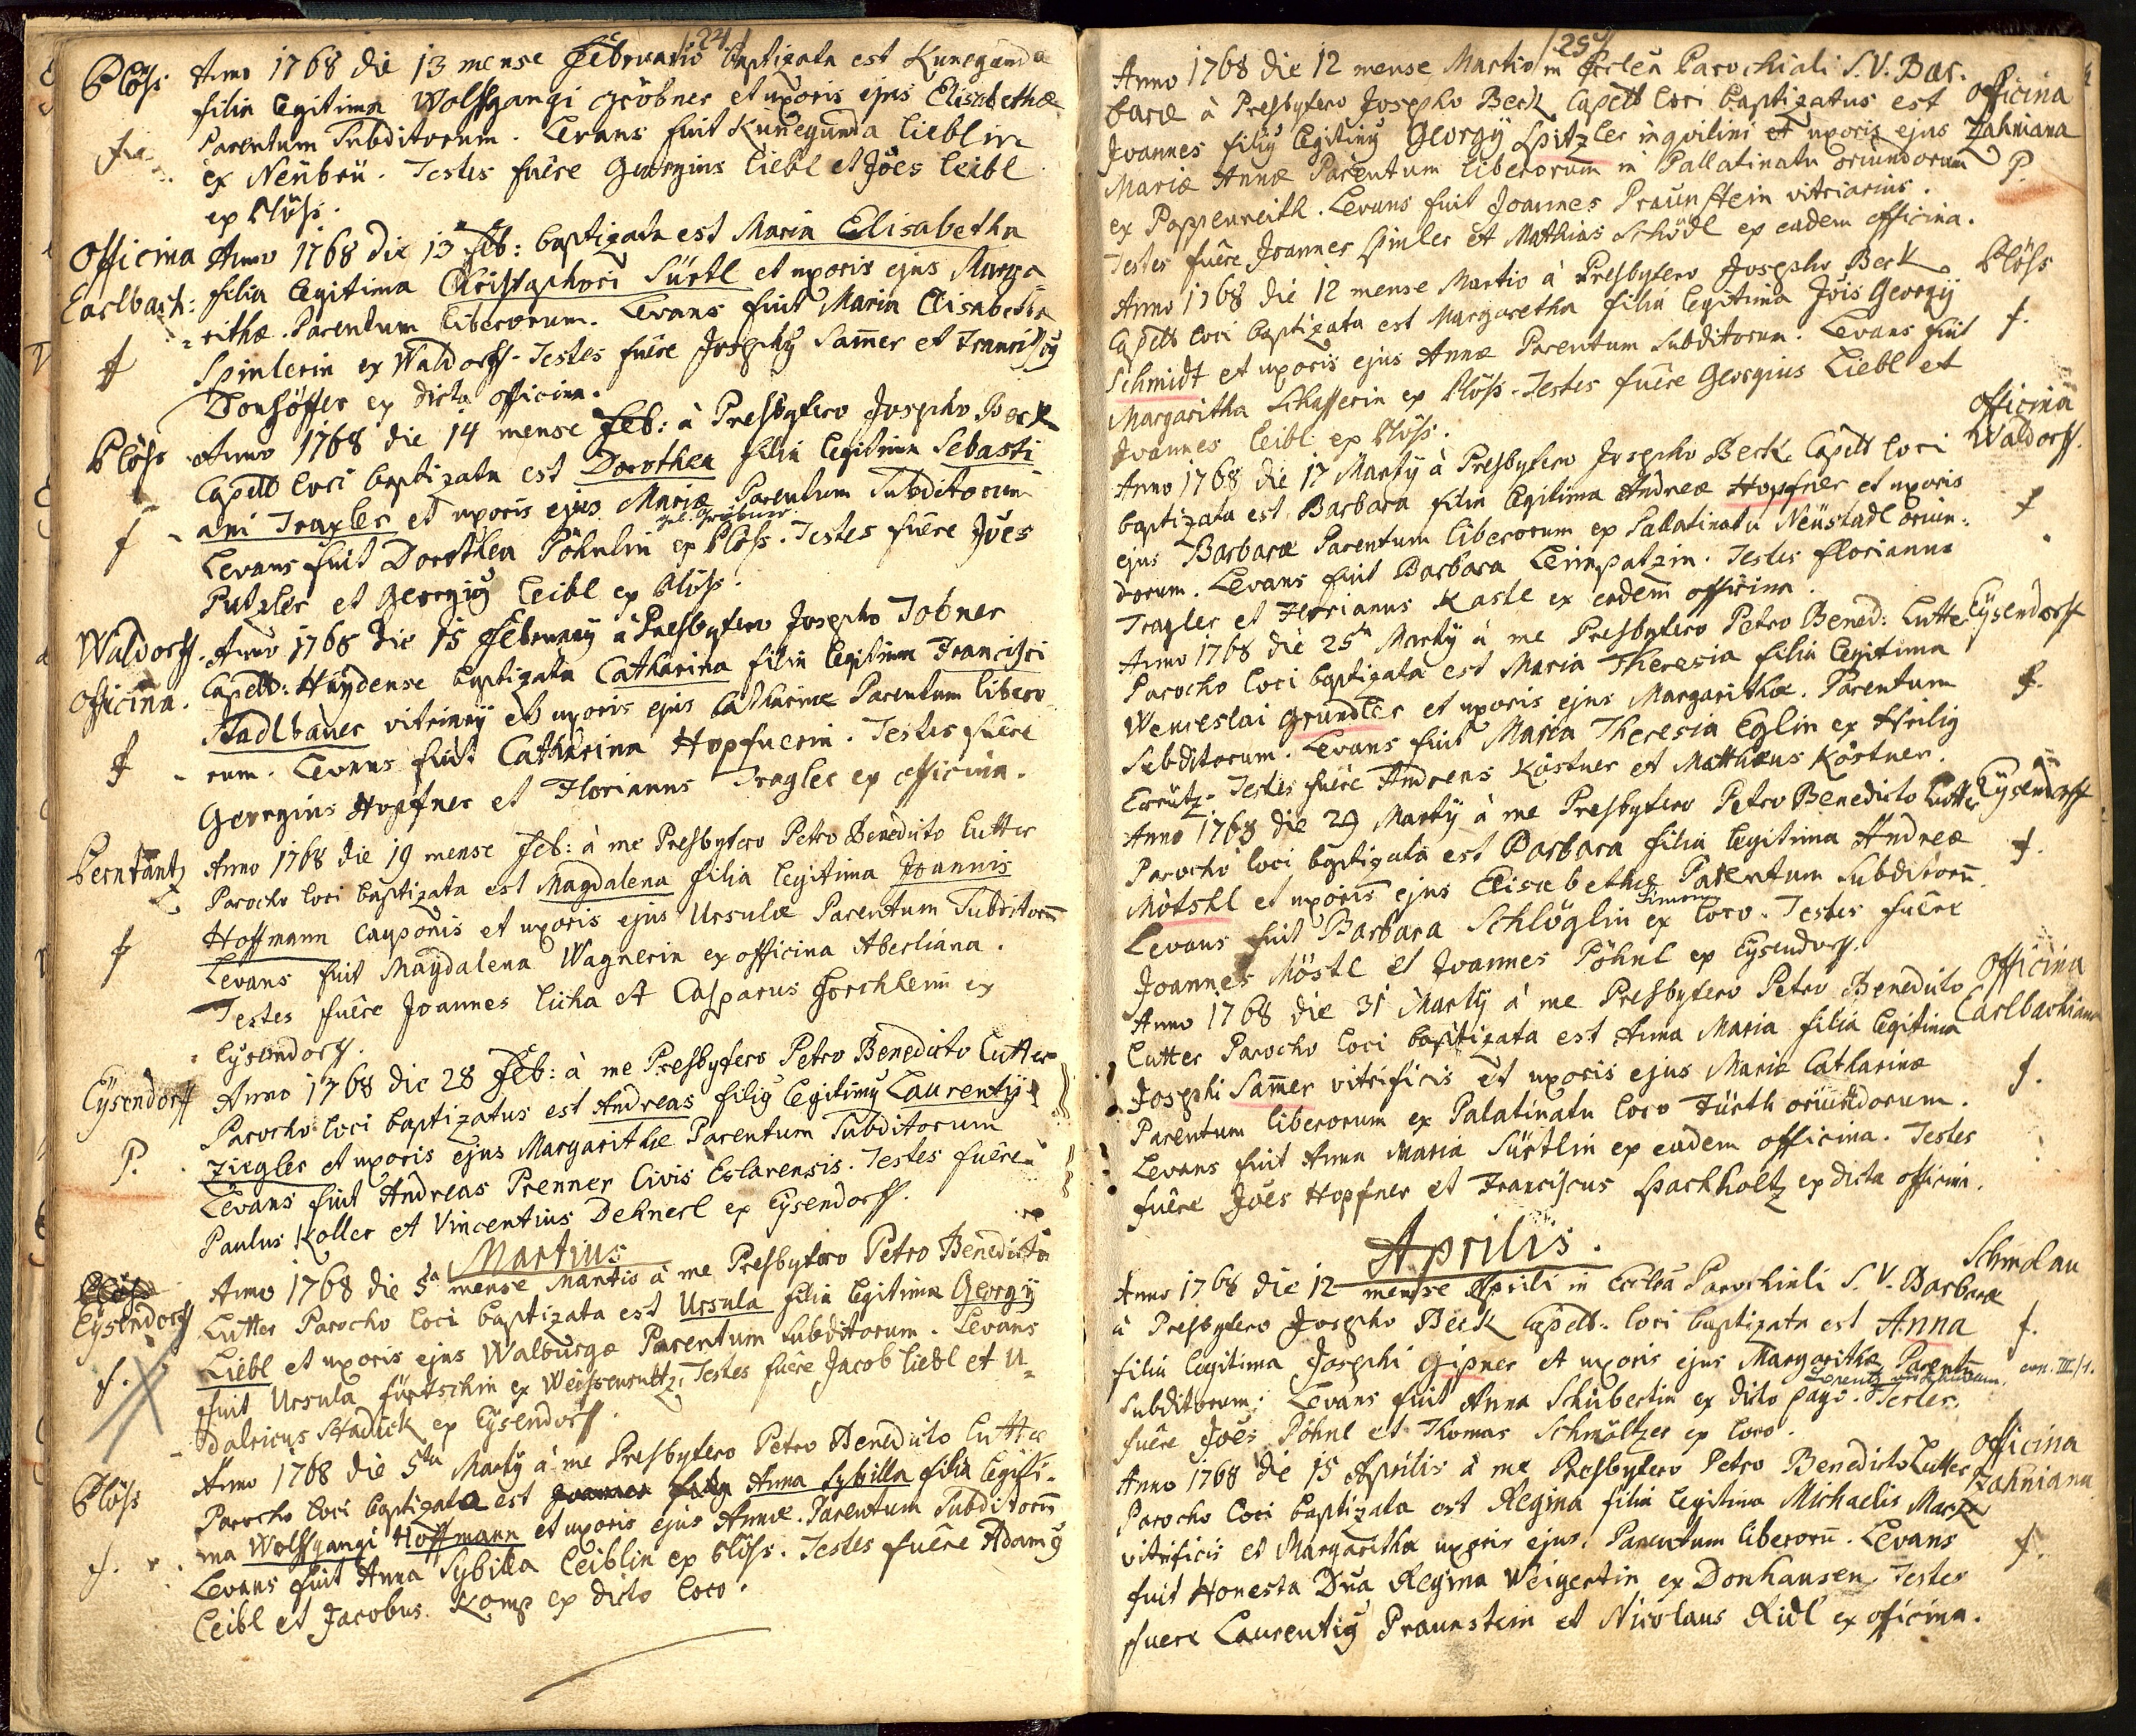 /24/
Plöss Anno 1768 die 13 mense Februario baptizata est Kunegunda
filia legitima Wolffgangi Gröbner et uxoris ejus Elisabethæ
f. Parentum Subditorum. Levans fuit Kunegunda Lieblin
ex Neübeü. Testes fuêre Georgius Liebl et Jöes Leibl
ex Plöss.
Officina Anno 1768 die 13 Feb: baptizata est Maria Elisabetha
Carlbach: filia legitima Christaphori Sürtl et uxoris ejus Marga=
=rithæ. Parentum liberorum. Levans fuit Maria Elisabetha
f Spinlerin ex Waldorff. Testes fuêre Josephg Sam̄er et Franciscg
Donhöffer ex dicta officina.
Plöss Anno 1768 die 14 mense Feb: à Presbytero Josepho Beck
Capell loci baptizata est Dorothea filia legitima Sebasti
f ani Traxler et uxoris ejus Mariæ Parentum Subditorum
gel. Gröbner
Levans fuit Dorothea Pöhnlin ex Plöss. Testes fuêre Jöes
Putzler et Georgig Leibl ex Plöss.
Waldorff. Anno 1768 die 15 Februarij à Presbytero Josepho Tobner
Officina. Capell: Haÿdense baptizata Catharina filia legitima Francisci
Stadlbauer vitriarij et uxoris ejus Catharinæ Parentum libero
f rum. Levans fuit Catharina Hopfnerin. Testes fuêre
Georgius Hopfner et Florianus Tragler ex officina.
Perntantz Anno 1768 die 19 mense Feb: à me Presbytero Petro Benedicto Lutter
Parocho loci baptizata est Magdalena filia legitima Joannis
f Hoffmann cauponis et uxoris ejus Ursulæ Parentum Subditorum̄
Levans fuit Magdalena Wagnerin ex officina Aberliana.
Testes fuêre Joannes Licha et Casparus Forchheim ex
Eÿsendorff.
Eÿsendorff Anno 1768 die 28 Feb: à me Presbytero Petro Benedicto Lutter
Parocho loci baptizatus est Andreas filig legitimg Laurentij
P. Ziegler et uxoris ejus Margarithæ Parentum Subditorum
Levans fuit Andreas Prenner Civis Eslarensis. Testes fuêre
Paulus Koller et Vincentius Dehnerl ex Eÿsendorff.
Martius
Plöss Anno 1768 die 5ta mense Martio à me Presbytero Petro Benedicto
Eÿsendorff Lutter Parocho loci baptizata est Ursula filia legitima Georgij
f. Liebl et uxoris ejus Walburgæ Parentum Subditorum. Levans
fuit Ursula Fürtschin ex Weissensultz. Testes fuêre Jacob Liebl et U=
dalricus Stadick ex Eÿsendorff.
Plöss Anno 1768 die 5ta Martij à me Presbytero Petro Benedicto Lutter
Parocho loci baptizata est Joannes filig Anna Sybilla filia legiti=
f. ma Wolffgangi Hoffmann et uxoris ejus Annæ. Parentum Subditorum̄
Levans fuit Anna Sybilla Leiblin ex Plöss. Testes fuêre Adamg
Leibl et Jacobus Komp ex dicto loco.
/25/
Anno 1768 die 12 mense Martio in Eccleã Parochiali S. V. Bar=
baræ à Presbytero Josepho Beck Capell loci baptizatus est Officina
Joannes filig legitimg Georgij Spitzler inquilini et uxoris ejus Zahniana
Mariæ Annæ Parentum liberorum in Pallatinatu oriundorum P.
ex Pappenreith. Levans fuit Joannes Praunstein vitriarius.
Testes fuêre Joannes Spinler et Mathias Schödl ex eadem officina.
Anno 1768 die 12 mense Martio à Presbytero Josepho Beck Plöss
Capell loci baptizata est Margaretha filia legitima Jois Georgij
Schmidt et uxoris ejus Annæ Parentum Subditorum. Levans fuit f.
Margaritha Schafferin ex Plöss. Testes fuêre Georgius Liebl et
Joannes Leibl ex Plöss.
Anno 1768 die 17 Martij à Presbytero Josepho Beck Capell loci Officina Waldorff.
baptizata est Barbara filia legitima Andreæ Hopfner et uxoris
ejus Barbaræ Parentum liberorum ex Pallatinatu Neüstadl oriun= f
dorum. Levans fuit Barbara Leimpatzin. Testes Florianus
Tragler et Florianus Kastl ex eadem officina.
Anno 1768 die 25ta Martij à me Presbytero Petro Bened: Lutter Eÿsendorff
Parocho loci baptizata est Maria Theresia filia legitima
Wenceslai Gründler et uxoris ejus Margarithæ. Parentum f.
Subditorum. Levans fuit Maria Theresia Eglin ex Heilig
Creütz. Testes fuêre Andreas Köstner et Matthæus Köstner.
Anno 1768 die 29 Martij à me Presbytero Petro Benedicto Lutter Eÿsendorff
Parocho loci baptizata est Barbara filia legitima Andreæ
Mötskl et uxoris ejus Elisabethæ Parentum Subditorum̄. f.
Simon
Levans fuit Barbara Schlöglin ex loco. Testes fuêre
Joannes Möstl et Joannes Pöhnl ex Eÿsendorff.
Anno 1768 die 31 Martij à me Presbytero Petro Benedicto Officina
Lutter Parocho loci baptizata est Anna Maria filia legitima Carlbachiana
Josephi Sam̄er vitrificis et uxoris ejus Mariæ Catharinæ
Parentum liberorum ex Palatinatu loco Fürth oriundorum. f.
Levans fuit Anna Maria Sürtlin ex eadem officina. Testes
fuêre Jöes Hopfner et Franciscus Spachholtz ex dicta officina.
Aprilis.
Anno 1768 die 12 mense Aprili in Eccleã Parochiali S. V. Barbaræ Schmolau
à Presbytero Josepho Beck Capell. loci baptizata est Anna f.
filia legitima Josephi Gipner et uxoris ejus Margarithæ Parentum̄ III/1.
Subditorum. Levans fuit Anna Schubertin ex dicto pago. Testes
fuêre Jöes Pöhnl et Thomas Schmöltzer ex loco.
Anno 1768 die 15 Aprilis à me Presbytero Petro Benedicto Lutter Officina
Parocho loci baptizata est Regina filia legitima Michaelis Marx Zahniana
vitrificis et Margarithæ uxoris ejus. Parentum liberorum̄. Levans f.
fuit Honesta Dn̄a Regina Weigertin ex Donhausen. Testes
fuere Laurentig Praunstein et Nicolaus Ridl ex officina.